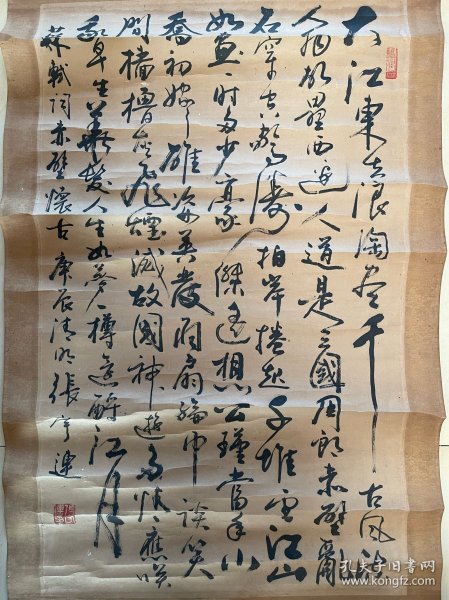 大江東去浪淘尽千古风流
人物故壘西边人道是三國周郎赤壁乱
石穿空驚涛拍岸捲起千堆雪江山
如画一时多少豪傑遥想公瑾當年小
喬初嫁了雄姿英发羽扇綸巾谈笑
間檣櫓灰飛煙滅故國神遊多情應笑
我早生華髮人生如夢一樽還酹江月
蘇軾词赤壁懷古庚辰清明張亨連
孔夫子旧书网
kongfz.com